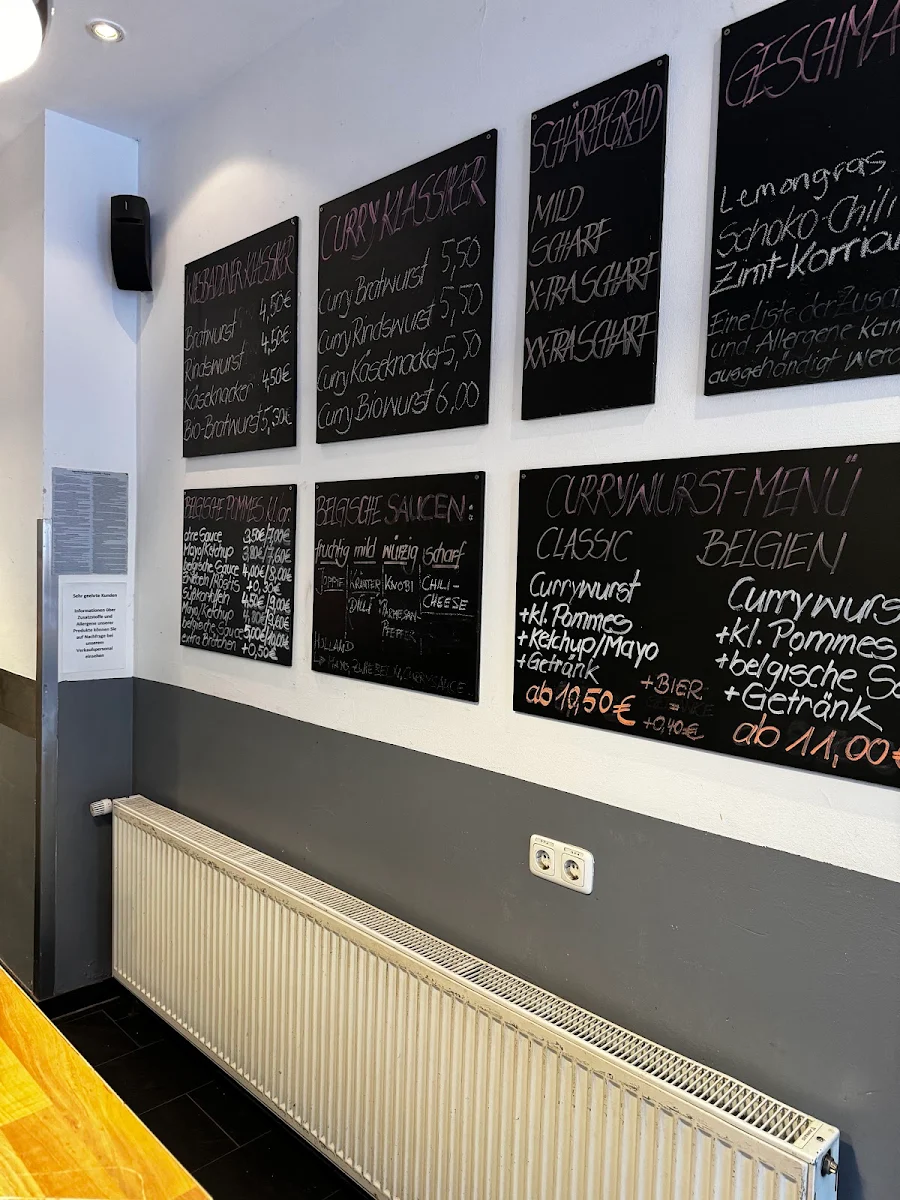 WIESBADENER KLASSIKER
Bratwurst 4,50€
Rindswurst 4,50€
Käseknacker 4,50€
Bio-Bratwurst 5,30€
CURRY KLASSIKER
Curry Bratwurst 5,50
Curry Rindswurst 5,50
Curry Käseknacker 5,50
Curry Biowurst 6,00
SCHÄRFEGRAD
MILD
SCHARF
X-TRA SCHARF
XX-TRA SCHARF
GESCHMA
Lemongras
Schoko-Chili
Zimt-Korria
Eine Liste der Zusa
und Allergene kan
ausgehändigt werd
BELGISCHE POMMES
ohne Sauce 3,50€/7,00€
Mayo/Ketchup
belgische Sauce 4,00€/8,00€
+0,30€
Süßkartoffeln 4,50€/9,00€
Mayo/Ketchup
belgische Sauce 5,00€/10,00€
extra Brätchen +0,50€
BELGISCHE SAUCEN:
fruchtig mild würzig scharf
JOPPIE KRÄUTER KNOBI CHILI-
DILL PARMESAN- CHEESE
PFEFFER
HOLLAND
CURRYWURST-MENÜ
CLASSIC
Currywurst
+kl. Pommes
+Ketchup/Mayo
+Getränk
ab 10,50€
+BIER
+0,40€
BELGIEN
Currywurs
+kl. Pommes
+belgische So
+Getränk
ab 11,00€
Sehr geehrte Kunden
Informationen über
Zusatzstoffe und
Allergene unserer
Produkte können Sie
auf Nachfrage bei
unserem
Verkaufspersonal
einsehen